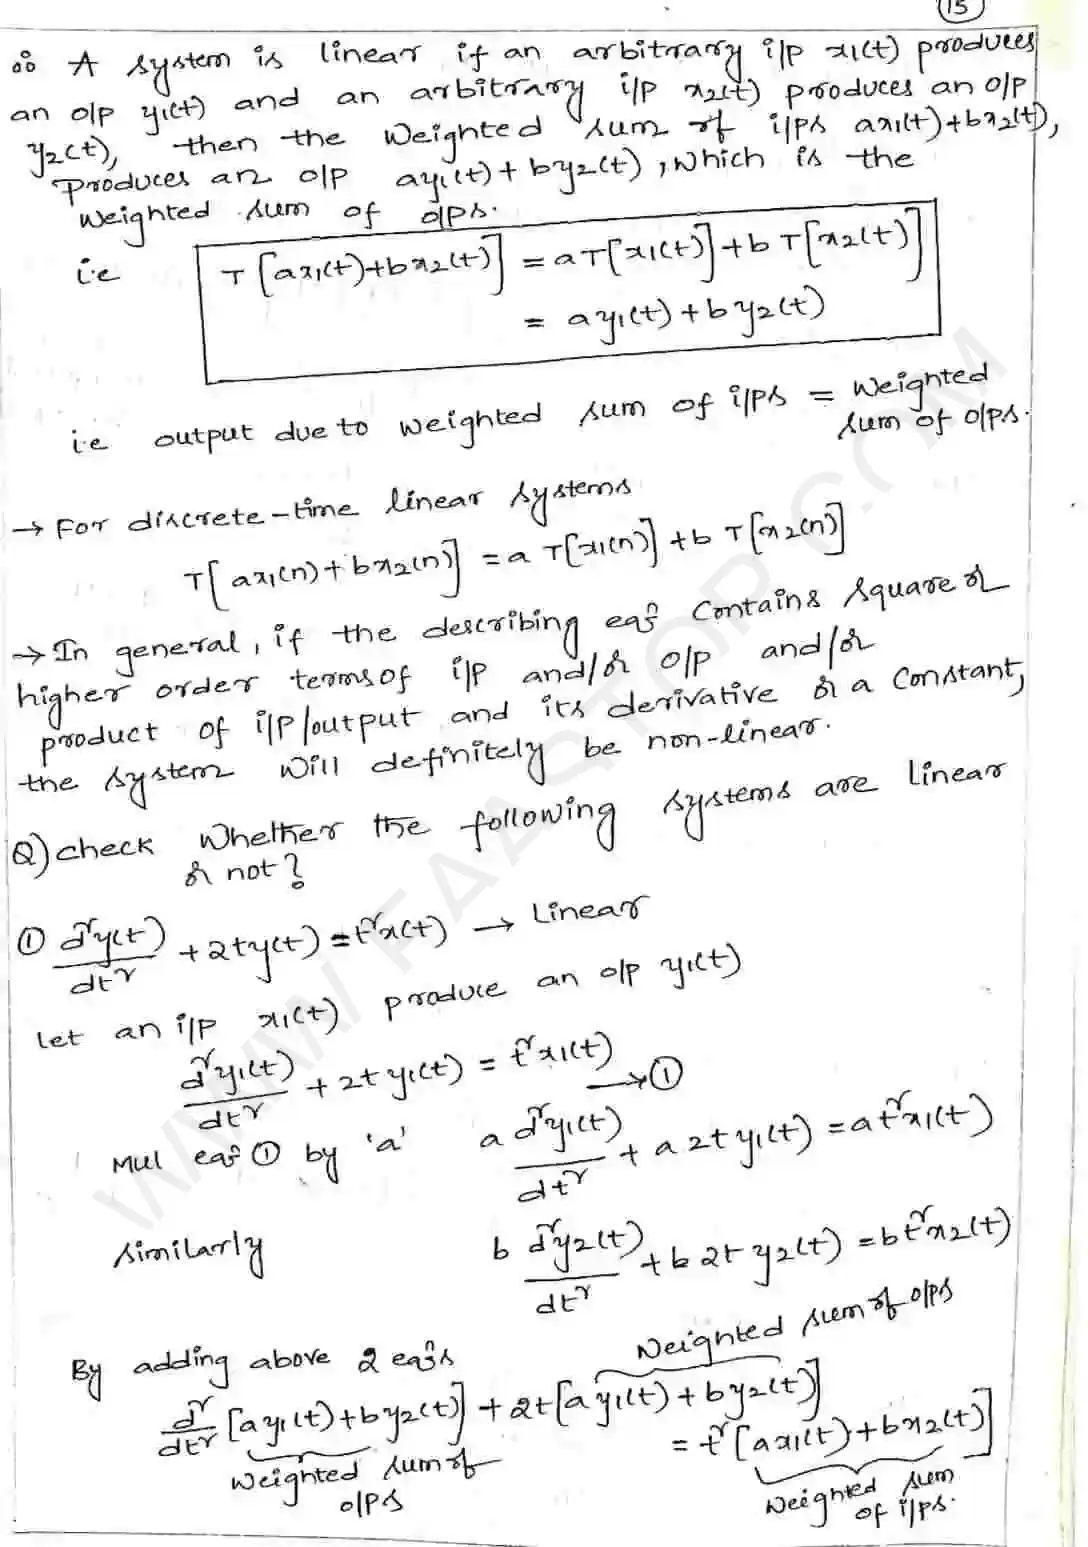 15
∴ A system is linear if an arbitrary i/p x1(t) produces
an o/p y1(t) and an arbitrary i/p x2(t) produces an o/p
y2(t), then the weighted sum of i/ps ax1(t)+bx2(t),
produces an o/p ay1(t)+by2(t), which is the
weighted sum of o/ps.
i.e T[ax1(t)+bx2(t)] = aT[x1(t)]+bT[x2(t)]
= ay1(t)+by2(t)
i.e output due to weighted sum of i/ps = weighted
sum of o/ps.
→ For discrete-time linear systems
T[ax1(n)+bx2(n)] = a T[x1(n)] + b T[x2(n)]
→ In general, if the describing eqⁿ contains square or
higher order terms of i/p and/or o/p and/or
product of i/p/output and its derivative or a constant,
the system will definitely be non-linear.
Q) check whether the following systems are linear
or not?
① d²y(t)/dt² + 2ty(t) = t²x(t) → Linear
Let an i/p x1(t) produce an o/p y1(t)
d²y1(t)/dt² + 2t y1(t) = t²x1(t) → ①
Mul eqⁿ ① by 'a' a d²y1(t)/dt² + a 2t y1(t) = a t²x1(t)
similarly b d²y2(t)/dt² + b 2t y2(t) = b t²x2(t)
By adding above 2 eqⁿs
Weighted sum of o/ps
d²/dt² [ay1(t)+by2(t)] + 2t[ay1(t)+by2(t)]
= t²[ax1(t)+bx2(t)]
Weighted sum of
o/ps
Weighted sum
of i/ps.
WWW.FAASTOP.COM